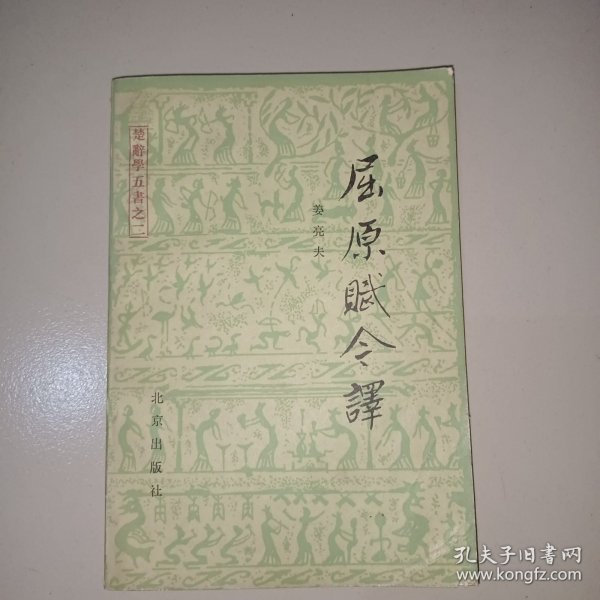 屈原賦今譯
姜亮夫
楚辭學五書之二
北京出版社
孔夫子旧书网
www.kongfz.com